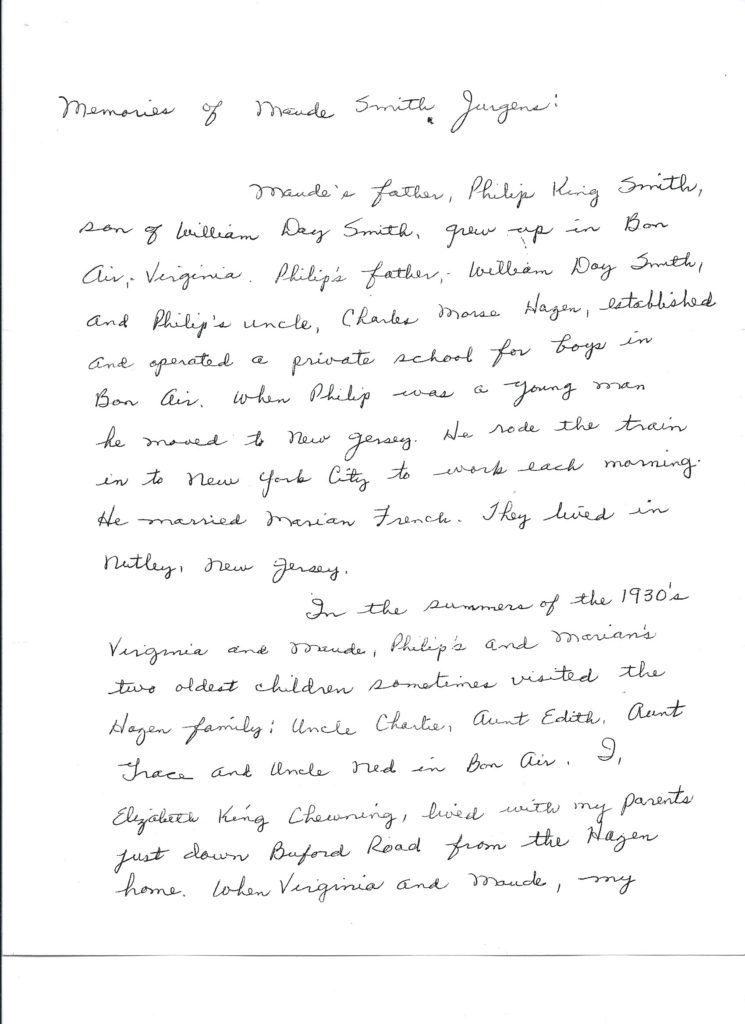 Memories of Maude Smith Jurgens:
Maude's father, Philip King Smith,
son of William Day Smith, grew up in Bon
Air, Virginia. Philip's father, William Day Smith,
and Philip's uncle, Charles Morse Hazen, established
and operated a private school for boys in
Bon Air. When Philip was a young man
he moved to New Jersey. He rode the train
in to New York City to work each morning.
He married Marian French. They lived in
Nutley, New Jersey.
In the summers of the 1930's
Virginia and Maude, Philip's and Marian's
two oldest children sometimes visited the
Hazen family: Uncle Charlie, Aunt Edith, Aunt
Grace and Uncle Ned in Bon Air. I,
Elizabeth King Chewning, lived with my parents
just down Buford Road from the Hazen
home. When Virginia and Maude, my